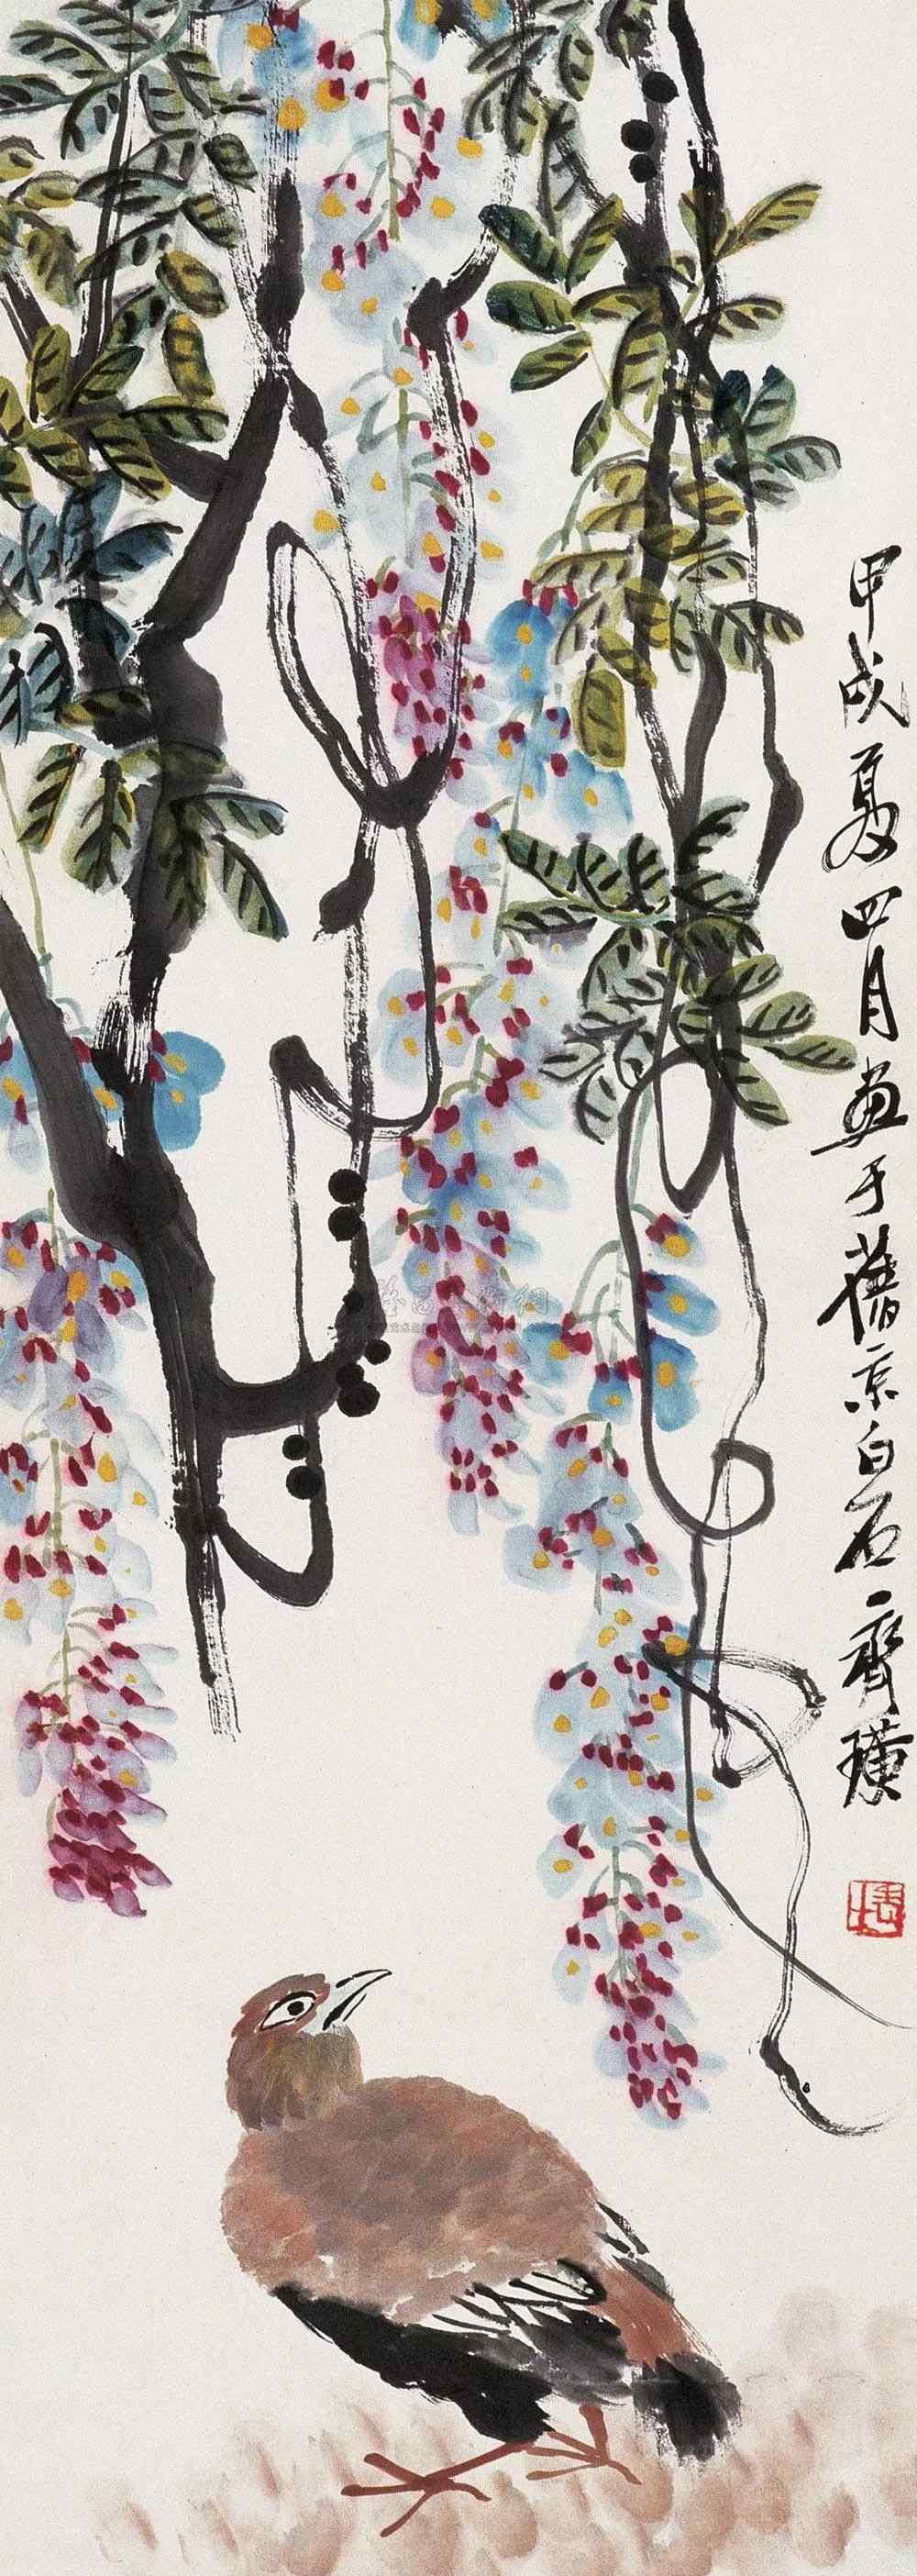 甲戌夏四月画于旧京白石齐璜